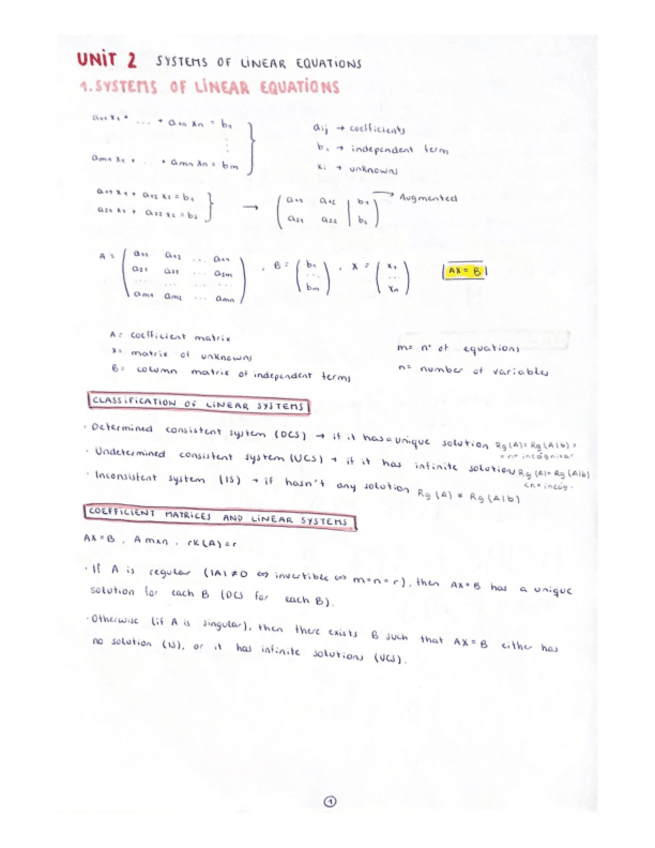 UNIT 2 SYSTEMS OF LINEAR EQUATIONS
1. SYSTEMS OF LINEAR EQUATIONS
a11 x1 + ... + a1n xn = b1
am1 x1 + ... + amn xn = bm
aij → coefficients
bi → independent term
xi → unknowns
a11 x1 + a12 x2 = b1
a21 x1 + a22 x2 = b2
→ ( a11 a12 | b1 )
( a21 a22 | b2 )
Augmented
A = ( a11 a12 ... a1n
a21 a22 ... a2m
... ... ... ...
am1 am2 ... amn ) , B = ( b1 ... bm ) , X = ( x1 ... xn ) AX = B
A = coefficient matrix
X = matrix of unknowns
B = column matrix of independent terms
m = nº of equations
n = number of variables
CLASSIFICATION OF LINEAR SYSTEMS
· Determined consistent system (DCS) → if it has a unique solution Rg(A) = Rg(A|b) =
= nº incógnitas
· Undetermined consistent system (UCS) → if it has infinite solution Rg(A) = Rg(A|b)
< nº incóg.
· Inconsistent system (IS) → if hasn't any solution Rg(A) ≠ Rg(A|b)
COEFFICIENT MATRICES AND LINEAR SYSTEMS
AX = B , A mxn , rK(A) = r
· If A is regular (|A| ≠ 0 ⇔ invertible ⇔ m = n = r), then AX = B has a unique
solution for each B (DCS for each B).
· Otherwise (if A is singular), then there exists B such that AX = B either has
no solution (IS), or it has infinite solutions (UCS).
1